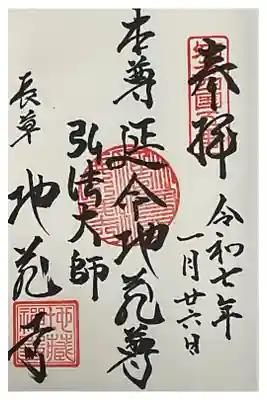 奉拝
令和七年
一月廿六日
本尊
延命地蔵尊
弘法大師
長草
地蔵寺